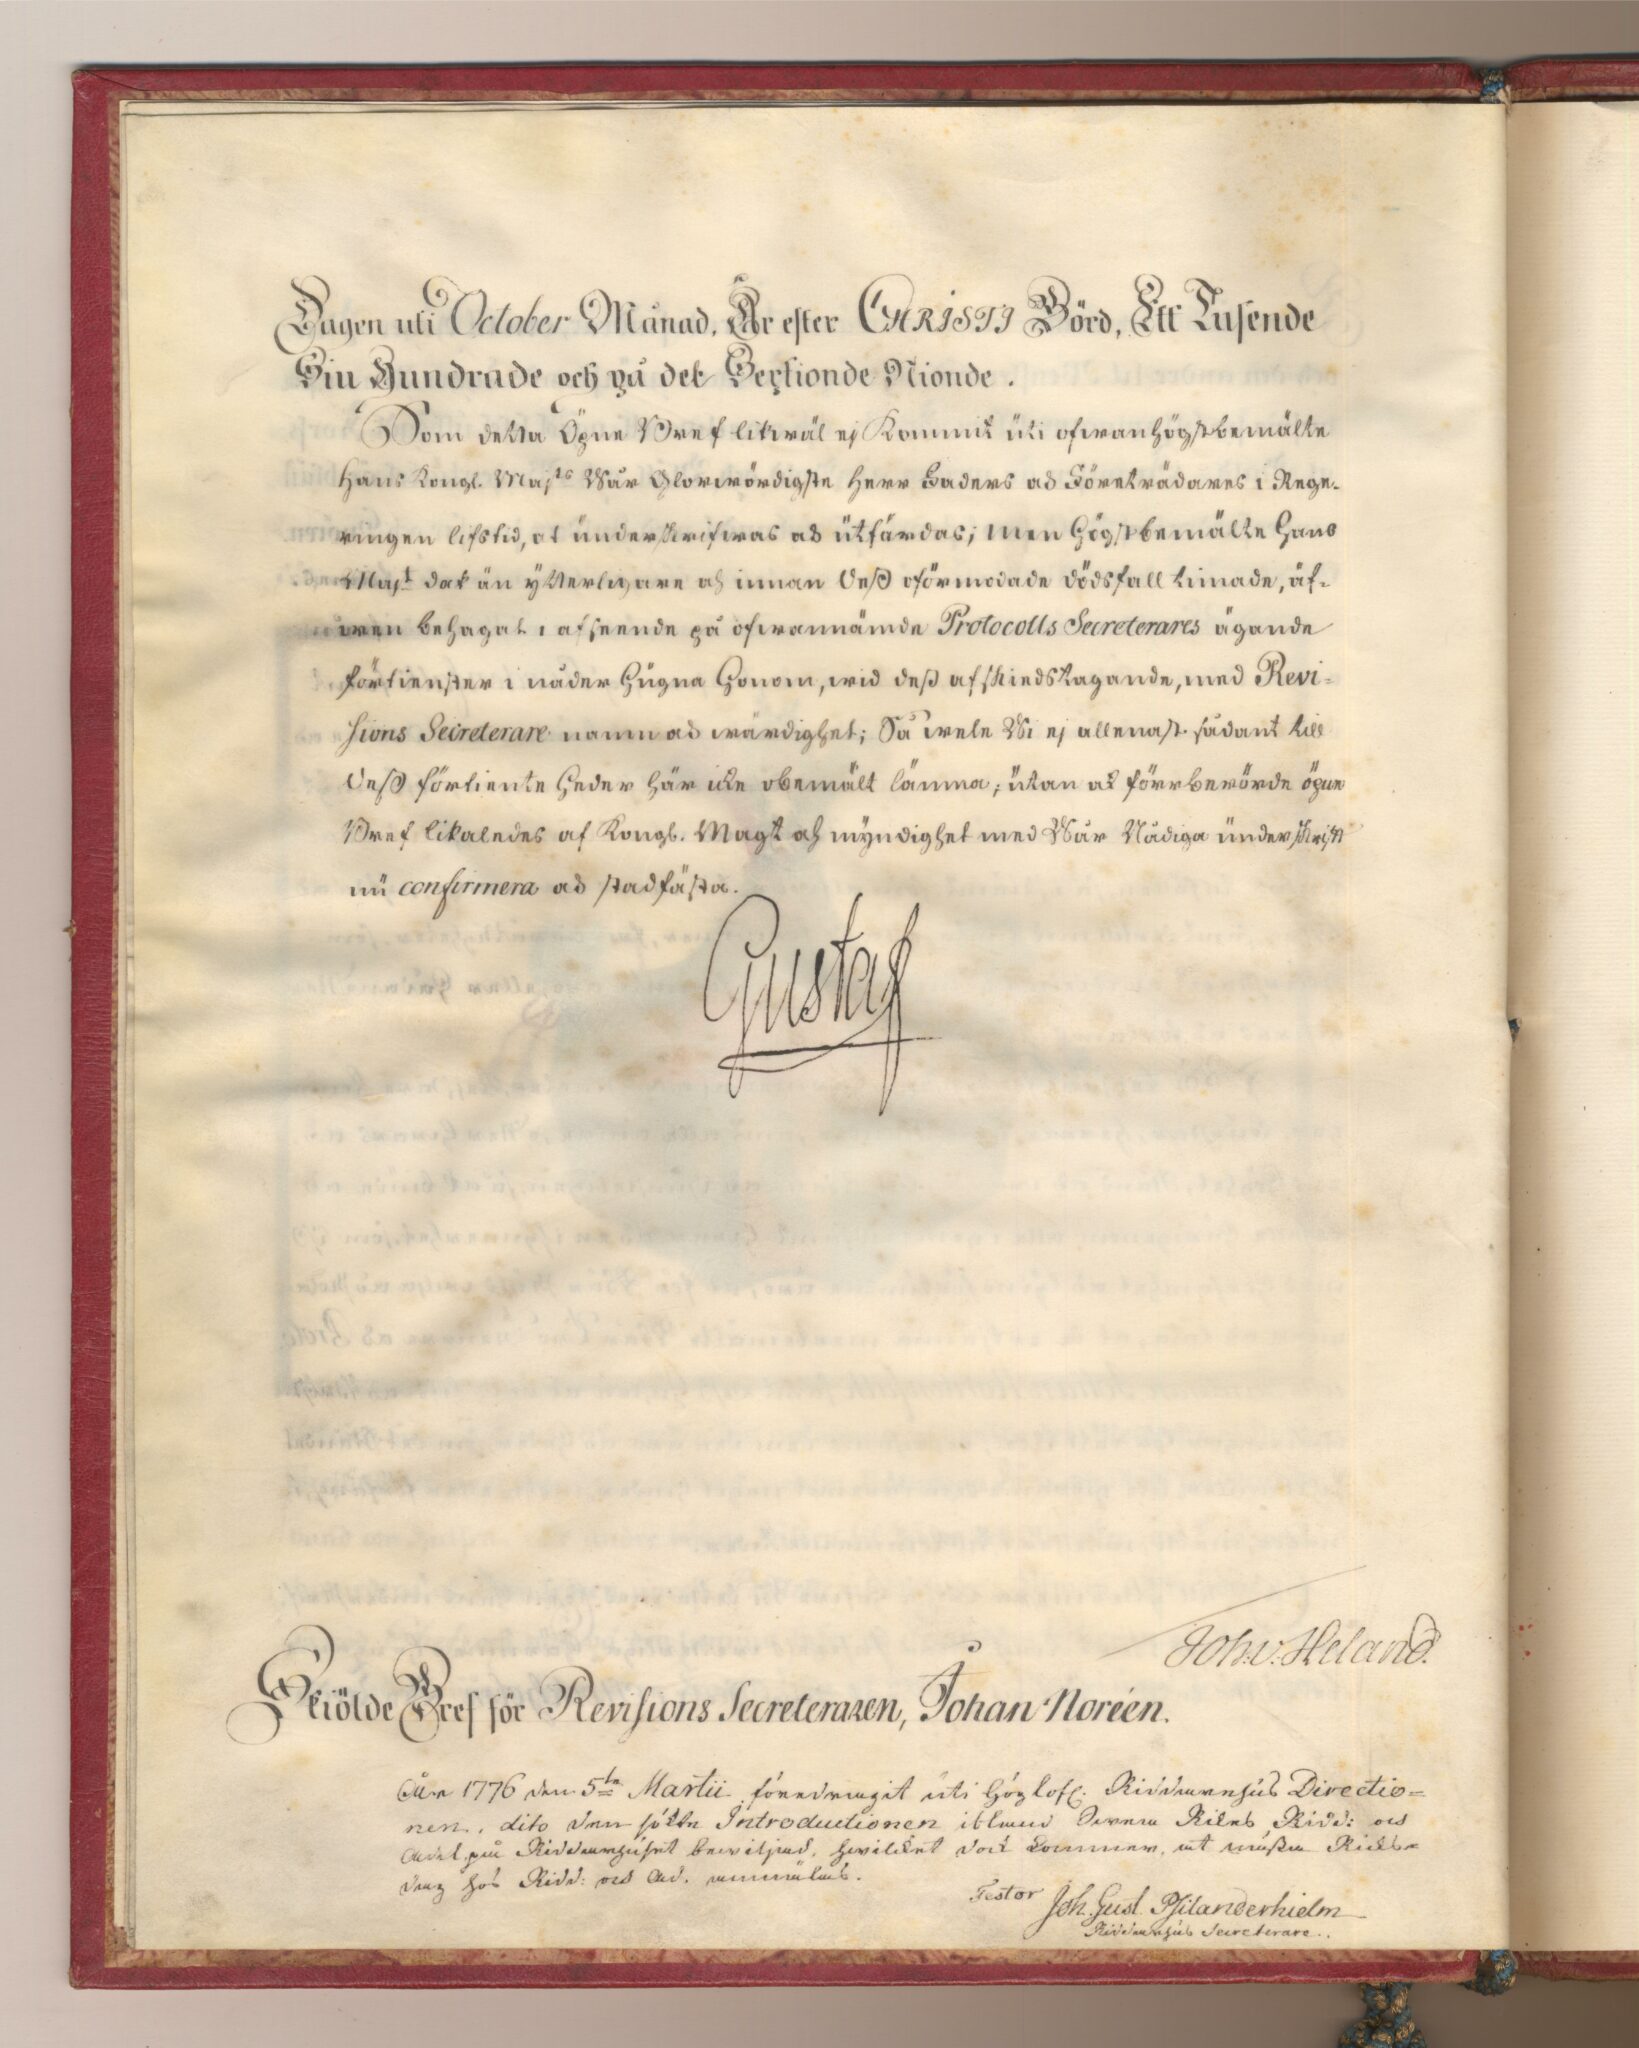 Dagen uti October Månad, År efter CHRISTI Börd, Ett Tusende
Siu Hundrade och på det Sextionde Nionde.
Som detta Öpne Bref likwäl ej kommit uti ofwanhögstbemälte
Hans Kongl. Maj:ts Wår Glorwördigste Herr Faders och Företrädares i Rege-
ringen lifstid, at underskrifwas och utfärdas; men Högstbemälte Hans
Maj:t dock än ytterligare och innan Dess oförmodade dödsfall timade, äf-
wen behagat i afseende på ofwannämde Protocolls Secreterares ägande
förtienster i nåder hugna Honom, wid dess afskiedstagande, med Revi-
sions Secreterare namn och wärdighet; Så wele Wi ej allenast sådant till
Dess förtiente heder här icke obemält lämna; utan ock förrberörde öpne
Bref likaledes af Kongl. Magt och myndighet med Wår Nådiga underskrift
nu confirmera och stadfästa.
Gustaf
Joh. v. Heland.
Skiölde Bref för Revisions Secreteraren, Johan Noréen.
År 1776 den 5:te Martii föredragit uti Höglofl. Riddarehus Directio-
nen, dito den sökte Introductionen ibland Swea Rikes Ridd: och
Adel på Riddarehuset bewiljad, hwilcket dock kommer at nästa Riks-
dag hos Ridd: och Ad. anmälas.
Testor Joh. Gust. Psilanderhielm
Riddarehus Secreterare.